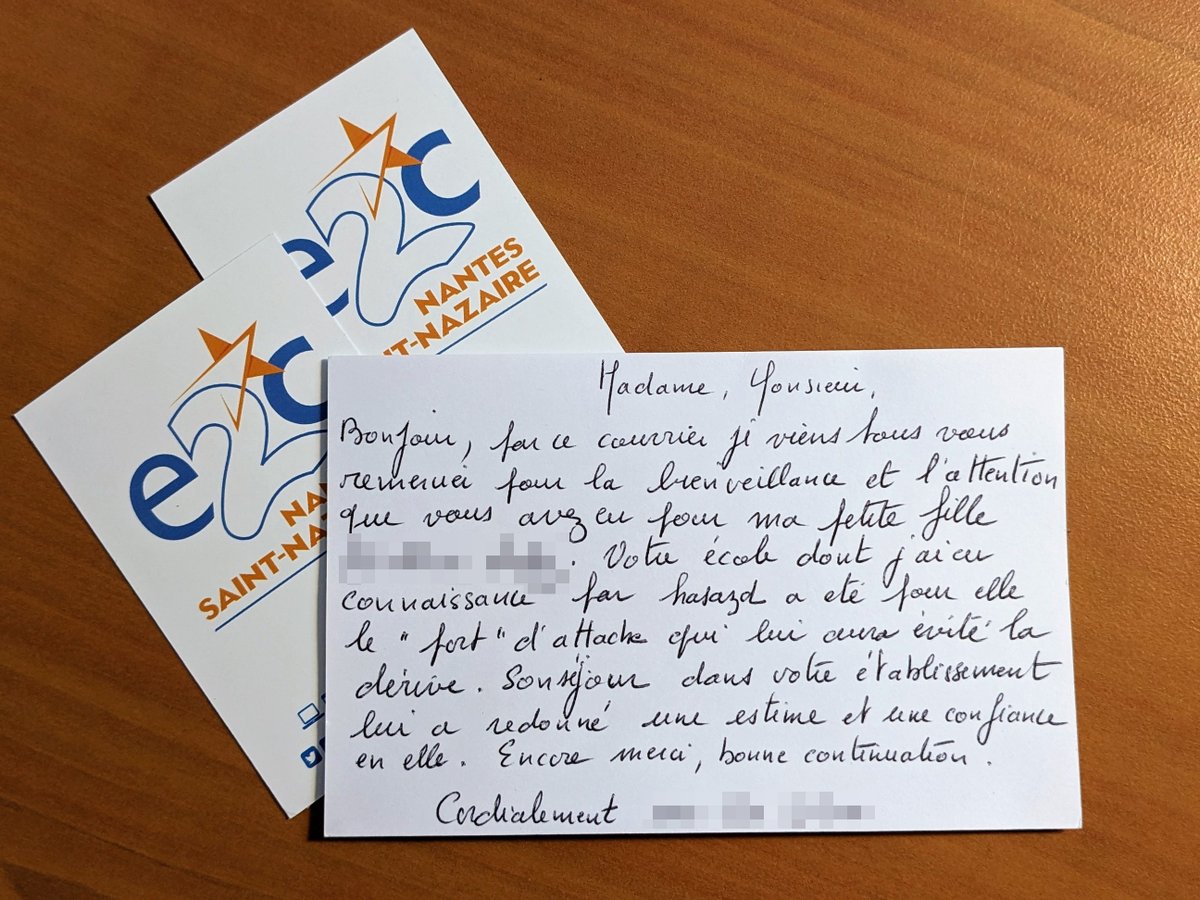 e2c
NANTES
NT-NAZAIRE
e2c
NA
SAINT-NA
Madame, Monsieur,
Bonjour, par ce courrier je viens tous vous
remercier pour la bienveillance et l'attention
que vous avez eu pour ma petite fille
. Votre école dont j'ai eu
connaissance par hasard a été pour elle
le "port" d'attache qui lui aura évité la
dérive. Son séjour dans votre établissement
lui a redonné une estime et une confiance
en elle. Encore merci, bonne continuation.
Cordialement